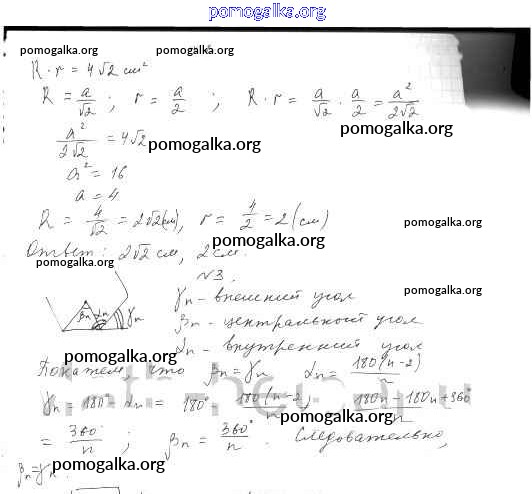 pomogalka.org
pomogalka.org pomogalka.org
R · r = 4√2 см²
R = a/√2 ; r = a/2 ; R · r = a/√2 · a/2 = a²/2√2
pomogalka.org
a²/2√2 = 4√2
pomogalka.org
a² = 16
a = 4
R = 4/√2 = 2√2(см), r = 4/2 = 2 (см)
pomogalka.org
pomogalka.org
Ответ: 2√2 см, 2 см.
pomogalka.org
№3.
βn αn γn
γn - внешний угол
pomogalka.org
βn - центральный угол
αn - внутренний угол
pomogalka.org
Покажем, что βn = γn αn = 180(n-2)/n
γn = 180° - αn = 180° - 180(n-2)/n = 180n - 180n + 360/n
pomogalka.org
= 360°/n ; βn = 360°/n . Следовательно,
pomogalka.org
βn = γn.
pomogalka.org
pomogalka.org